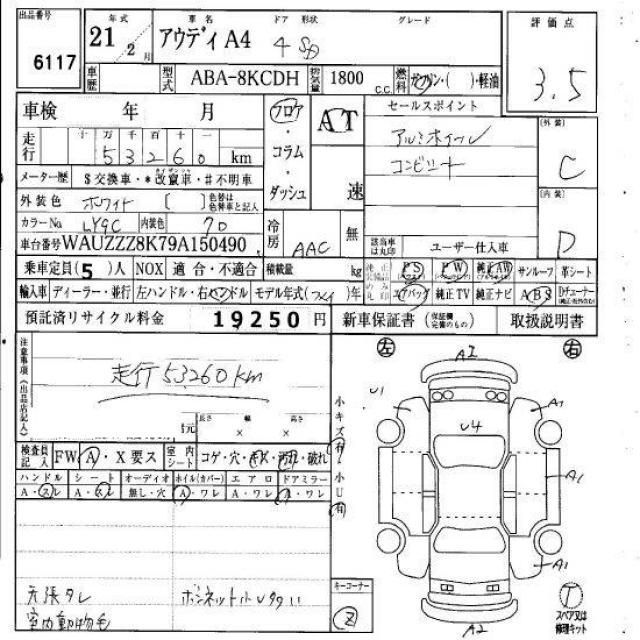 出品番号 年式 車名 ドア 形状 グレード 評価点
6117 21年 2月 アウディA4 4 SD 3.5
車歴 型式 ABA-8KCDH 排気量 1800 c.c. 燃料 ガソリン・( )・軽油
車検 年 月 フロア・コラム・ダッシュ AT 速 セールスポイント [外装]
走行 十 万 千 百 十 一 アルミホイール C
5 3 2 6 0 km コンビシート
メーター歴 $交換車・*改竄車・#不明車 [内装]
外装色 ホワイト [ ] 色替は色替車と記入 D
カラーNo LY9C 内装色 70 冷房 AAC 無
車台番号 WAUZZZ8K79A150490 該当車は丸印 ユーザー仕入車
乗車定員(5)人 NOX 適合・不適合 積載量 kg PS PW 純正AW サンルーフ 革シート
輸入車 ディーラー・並行 左ハンドル・右ハンドル モデル年式( )年 エアバッグ 純正TV 純正ナビ ABS Dチューナー
預託済リサイクル料金 19250円 新車保証書(保証欄完備のもの) 取扱説明書
注意事項(出品店記入) 左 右
走行53260km
長さ 幅 高さ
元 × ×
小キズ有・小U有
A2
U1 A1
U4
A1
A1
A2
検査員記入 FW A・X要ス 室内シート コゲ・穴・キズ・汚れ・破れ
ハンドル シート オーディオ ホイル(カバー) エアロ ドアミラー
A・スレ A・スレ 無し・穴 A・ワレ A・ワレ A・ワレ
天張タレ ボンネット小U
室内動物毛
キーコーナー
2
T
スペア又は修理キット